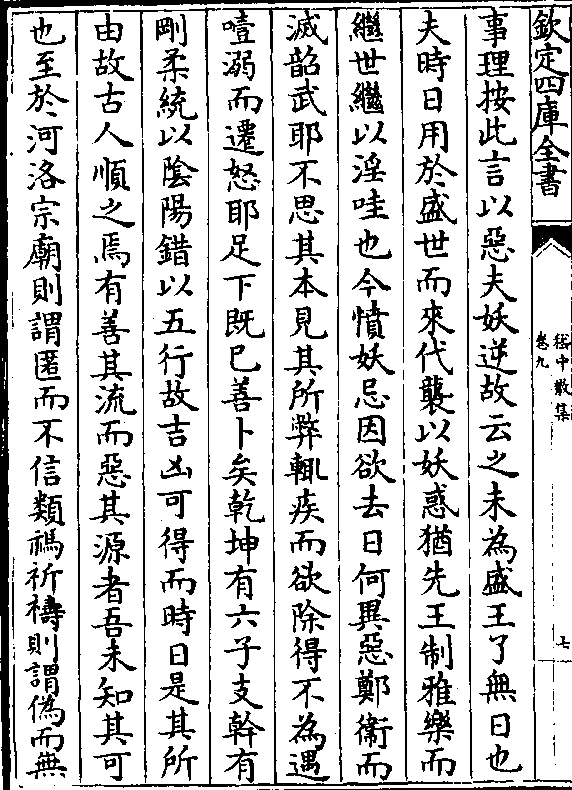 欽定四庫全書
嵇中散集
卷九
七
事理按此言以惡夫妖逆故云之未為盛王了無日也
夫時日用於盛世而來代襲以妖惑猶先王制雅樂而
繼世繼以淫哇也今憤妖忌因欲去日何異惡鄭衞而
滅韶武耶不思其本見其所弊輒疾而欲除得不為遇
噎溺而遷怒耶足下既已善卜矣乾坤有六子支幹有
剛柔統以陰陽錯以五行故吉凶可得而時日是其所
由故古人順之焉有善其流而惡其源者吾未知其可
也至於河洛宗廟則謂匿而不信類禡祈禱則謂偽而無